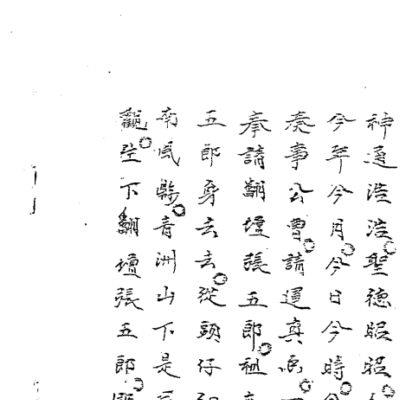 神通浩浩聖德昭昭
今年今月今日今時
奏事公曹請運真
奉請翻壇張五郎祖
五郎身去去從頭仔
南風青洲山下是
下翻壇張五郎